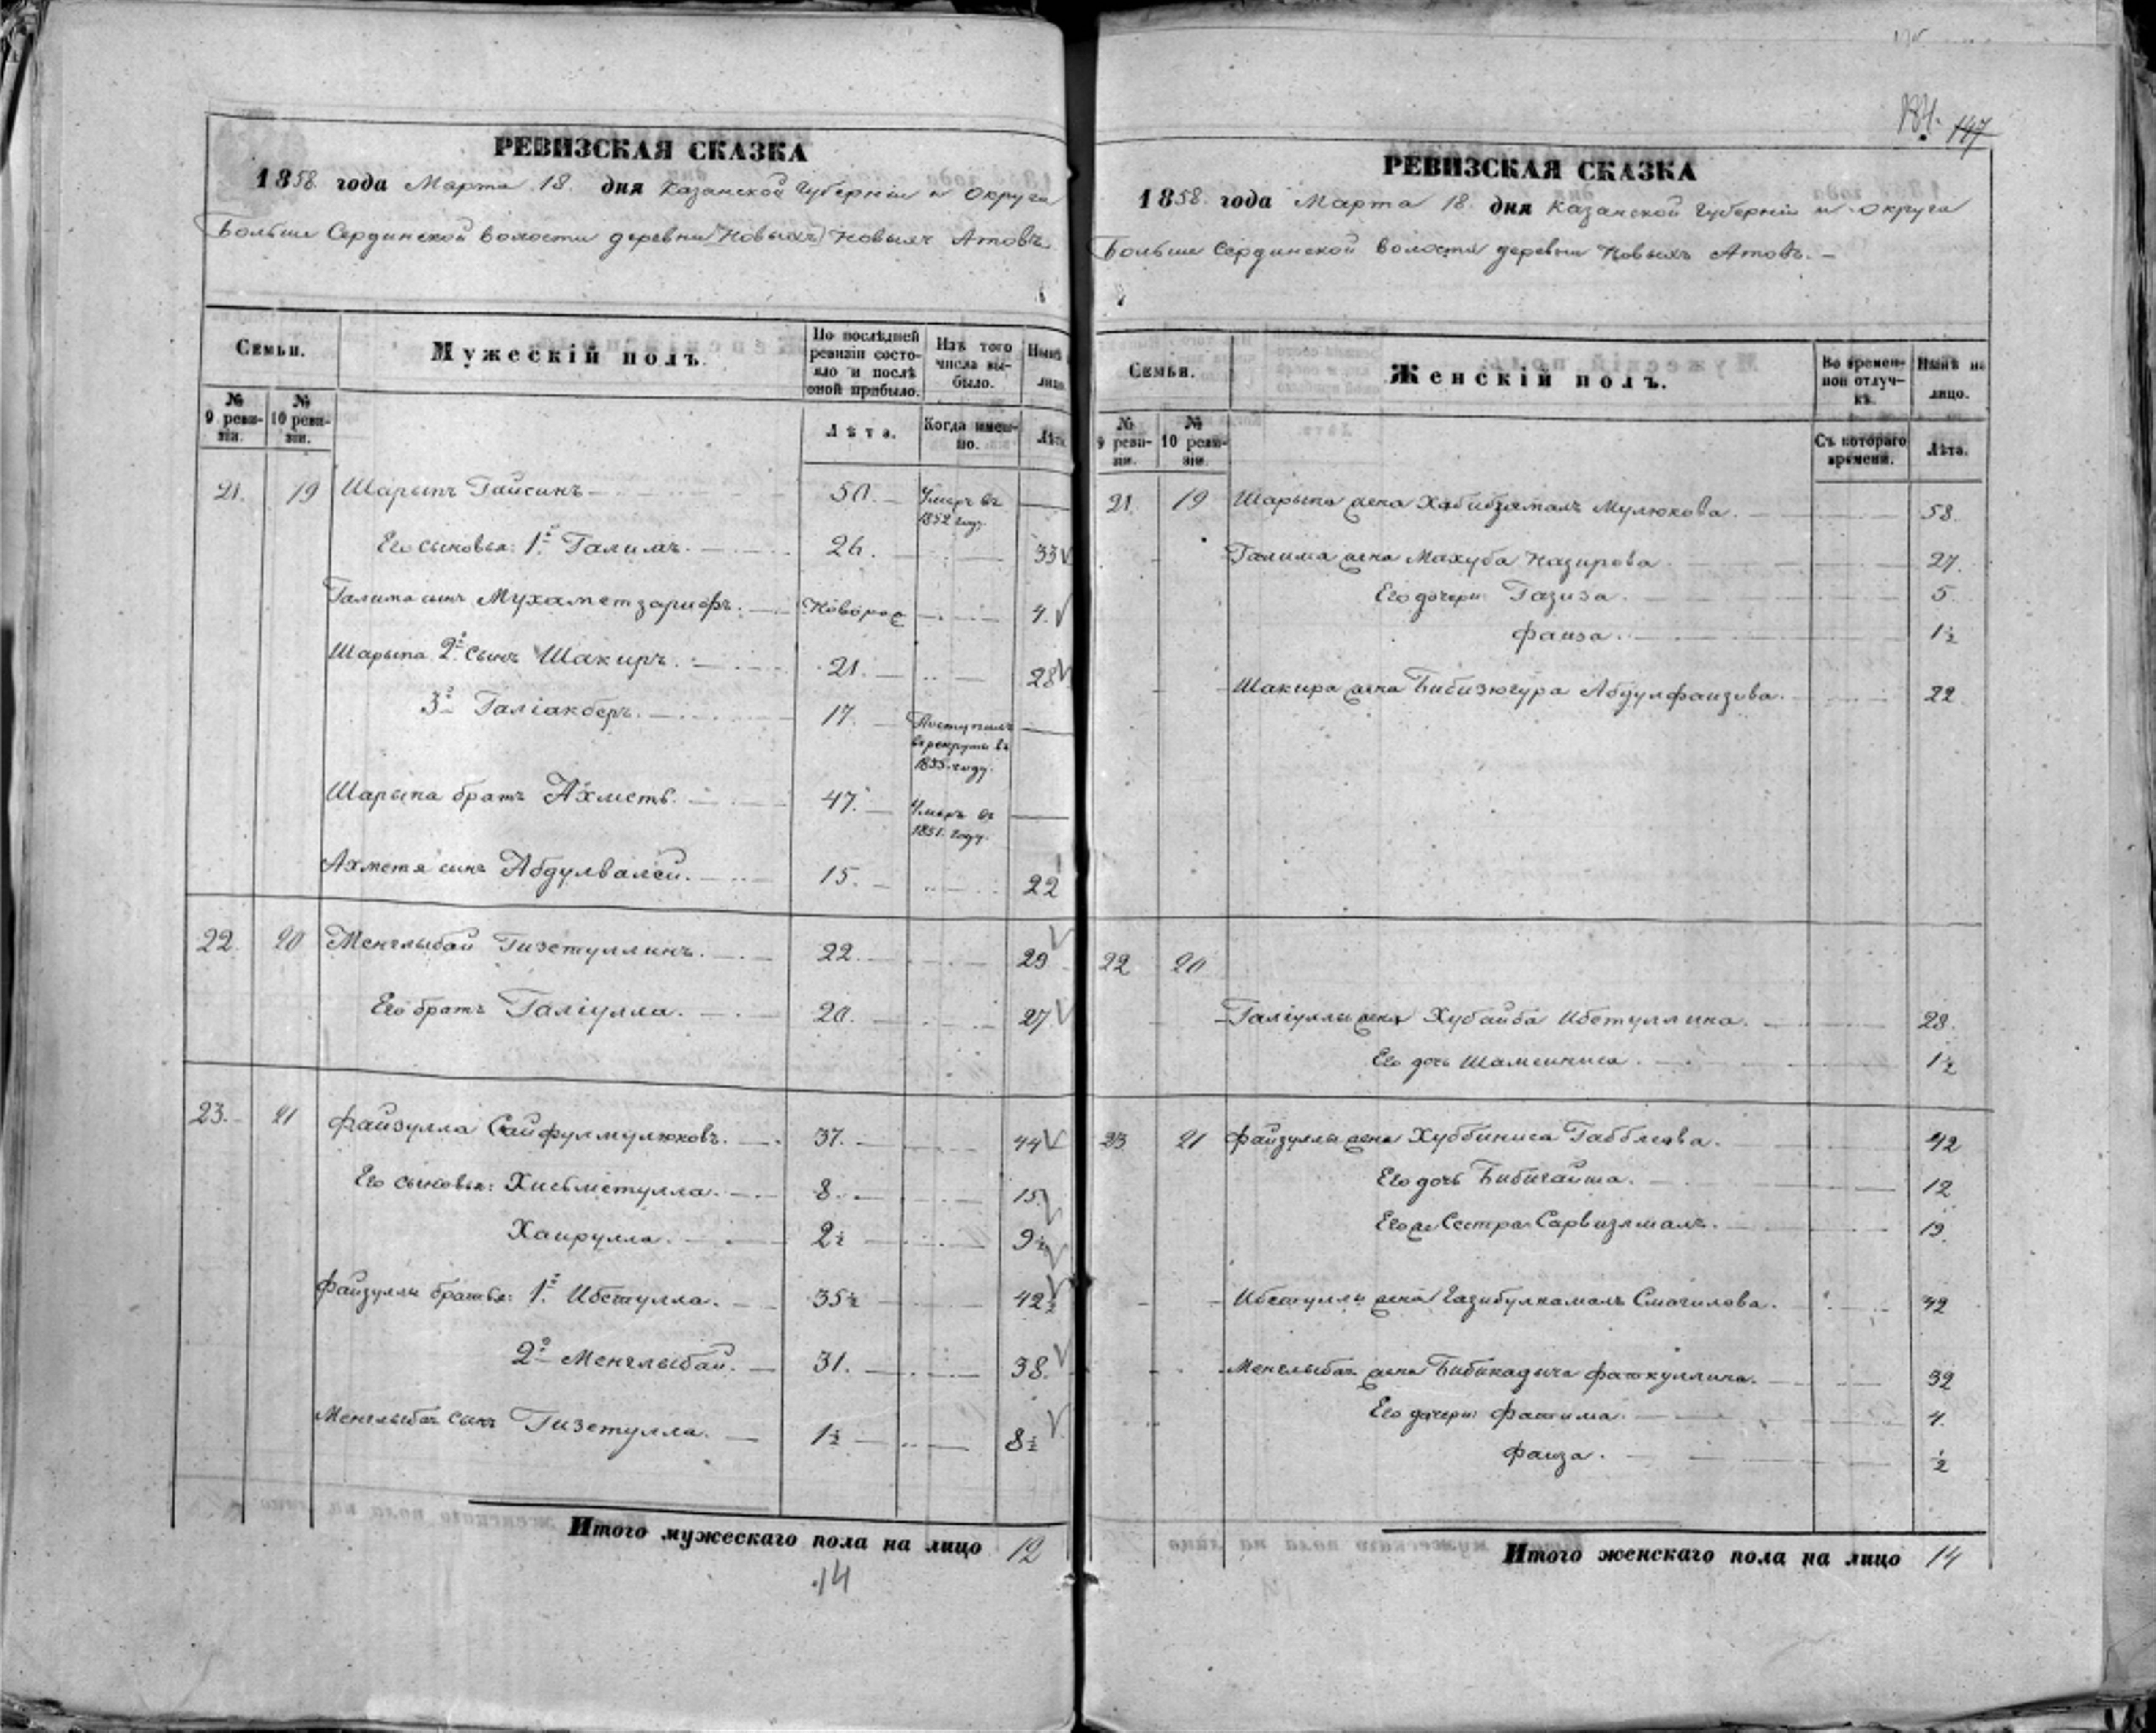 РЕВИЗСКАЯ СКАЗКА
1858. года Марта 18. дня Казанской Губерніи и Округа
Больше Сердинской волости деревни (Новыхъ) Новыхъ Атовъ.
Семьи.
Мужескій полъ.
По послѣдней ревизіи состояло и послѣ оной прибыло.
Изъ того числа выбыло.
Нынѣ лицо
№ 9 ревизіи.
№ 10 ревизіи.
Лѣта.
Когда именно.
Лѣта
21. 19 Шарыпъ Гайсинъ 50. Умеръ въ 1852 году.
Его сыновья: 1й Галимъ. 26. 33
Галима сынъ Мухаметзарифъ. Новорос 4.
Шарыпа 2й сынъ Шакиръ. 21. 28
3й Галіакберъ. 17. Поступилъ въ рекруты въ 1855. году.
Шарыпа братъ Ахметъ. 47. Умеръ въ 1851. году.
Ахметя сынъ Абдулвалей. 15. 22
22. 20 Менглыбай Гизетуллинъ. 22. 29
Его братъ Галіулла. 20. 27
23. 21 Файзулла Сайфулмулюковъ. 37. 44
Его сыновья: Хисьметулла. 8. 15.
Хаирулла. 2½ 9½
Файзуллы братья: 1й Ибетулла. 35½ 42½
2й Менглыбай. 31. 38.
Менглыбая сынъ Гизетулла. 1½ 8½
Итого мужескаго пола на лицо 12
14
184. 147
РЕВИЗСКАЯ СКАЗКА
1858. года Марта 18. дня Казанской Губерніи и Округа
Больше Сердинской волости деревни Новыхъ Атовъ.
Семьи.
Женскій полъ.
Во временной отлучкѣ.
Нынѣ на лицо.
№ 9 ревизіи.
№ 10 ревизіи.
Съ котораго времени.
Лѣта.
21. 19 Шарыпа жена Хабибзямалъ Мулюкова. 58.
Галима жена Махуба Назирова 27.
Его дочери: Газиза. 5.
Фаиза. 1½
Шакира жена Бибизюгура Абдулфаизова. 22
22 20
Галіуллы жена Хубайба Ибетуллина. 28.
Его дочь Шамсиниса. 1½
23 21 Файзуллы жена Хуббиниса Габбясова. 42
Его дочь Бибигайша. 12
Его же Сестра Сарвизямалъ. 19.
Ибетуллы жена Газибулкамалъ Смагилова. 42
Менглыбая жена Бибикадича Фаткуллина. 32
Его дочери: Фатима. 4.
Фаиза. ½
Итого женскаго пола на лицо 14